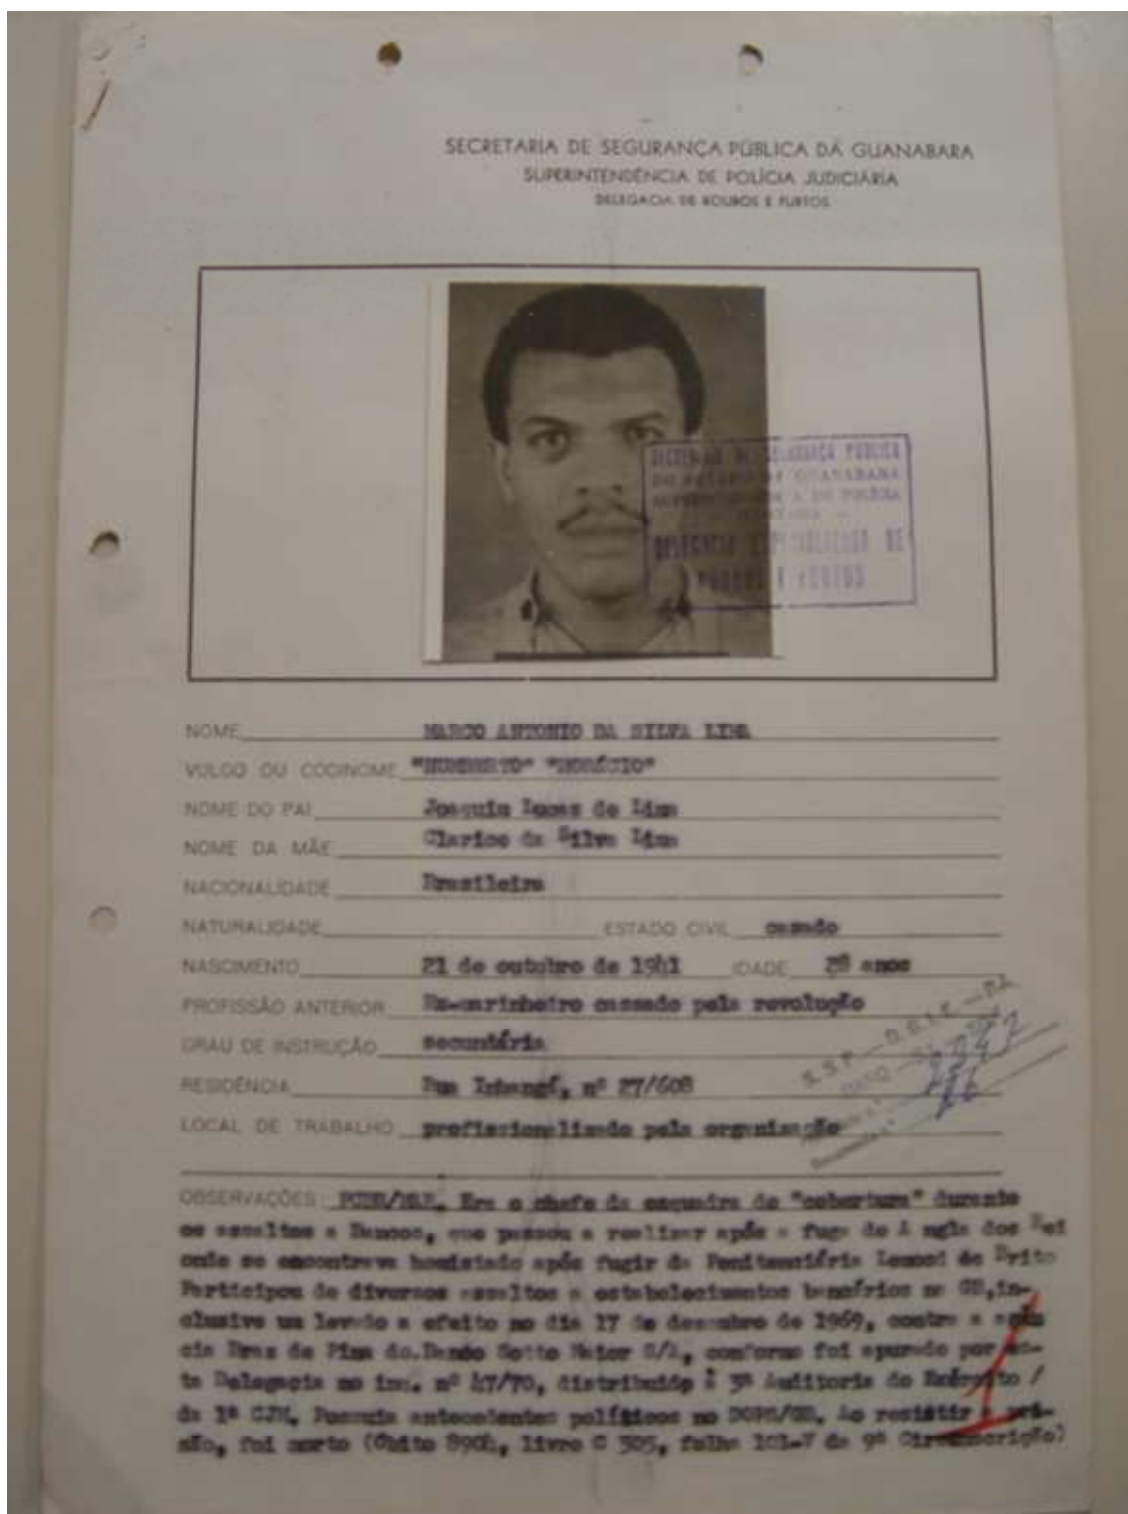 SECRETARIA DE SEGURANÇA PÚBLICA DA GUANABARA
SUPERINTENDÊNCIA DE POLÍCIA JUDICIÁRIA
DELEGACIA DE ROUBOS E FURTOS
SECRETARIA DE SEGURANÇA PÚBLICA
DO ESTADO DA GUANABARA
DELEGACIA ESPECIALIZADA DE
ROUBOS E FURTOS
NOME MARCO ANTONIO DA SILVA LIMA
VULGO OU CODINOME "HUMBERTO" "HORÁCIO"
NOME DO PAI Joaquim Lucas de Lima
NOME DA MÃE Clarice da Silva Lima
NACIONALIDADE Brasileira
NATURALIDADE ESTADO CIVIL casado
NASCIMENTO 21 de outubro de 1941 IDADE 28 anos
PROFISSÃO ANTERIOR Ex-marinheiro cassado pela revolução
GRAU DE INSTRUÇÃO secundária
RESIDÊNCIA Rua Inhangá, nº 27/608
LOCAL DE TRABALHO profissionalizado pela organização
OBSERVAÇÕES: PCBR/MLE. Era o chefe da esquadra de "cobertura" durante
os assaltos a Bancos, que passou a realizar após a fuga de A ngla dos Rei
onde se encontrava homisiado após fugir da Penitenciária Lemos de Brito
Participou de diversos assaltos a estabelecimentos bancários na GB, in-
clusive um levado a efeito no dia 17 de dezembro de 1969, contra a agên
cia Braz de Pina do Banco Sotto Maior S/A, conforme foi apurado por es-
ta Delegacia no inq. nº 47/70, distribuído à 3ª Auditoria do Exército /
da 1ª CJM. Possuia antecedentes políticos no DOPS/GB. Ao resistir à pri-
são, foi morto (Óbito 8904, livro C 305, folha 101-V da 9ª Circunscrição)